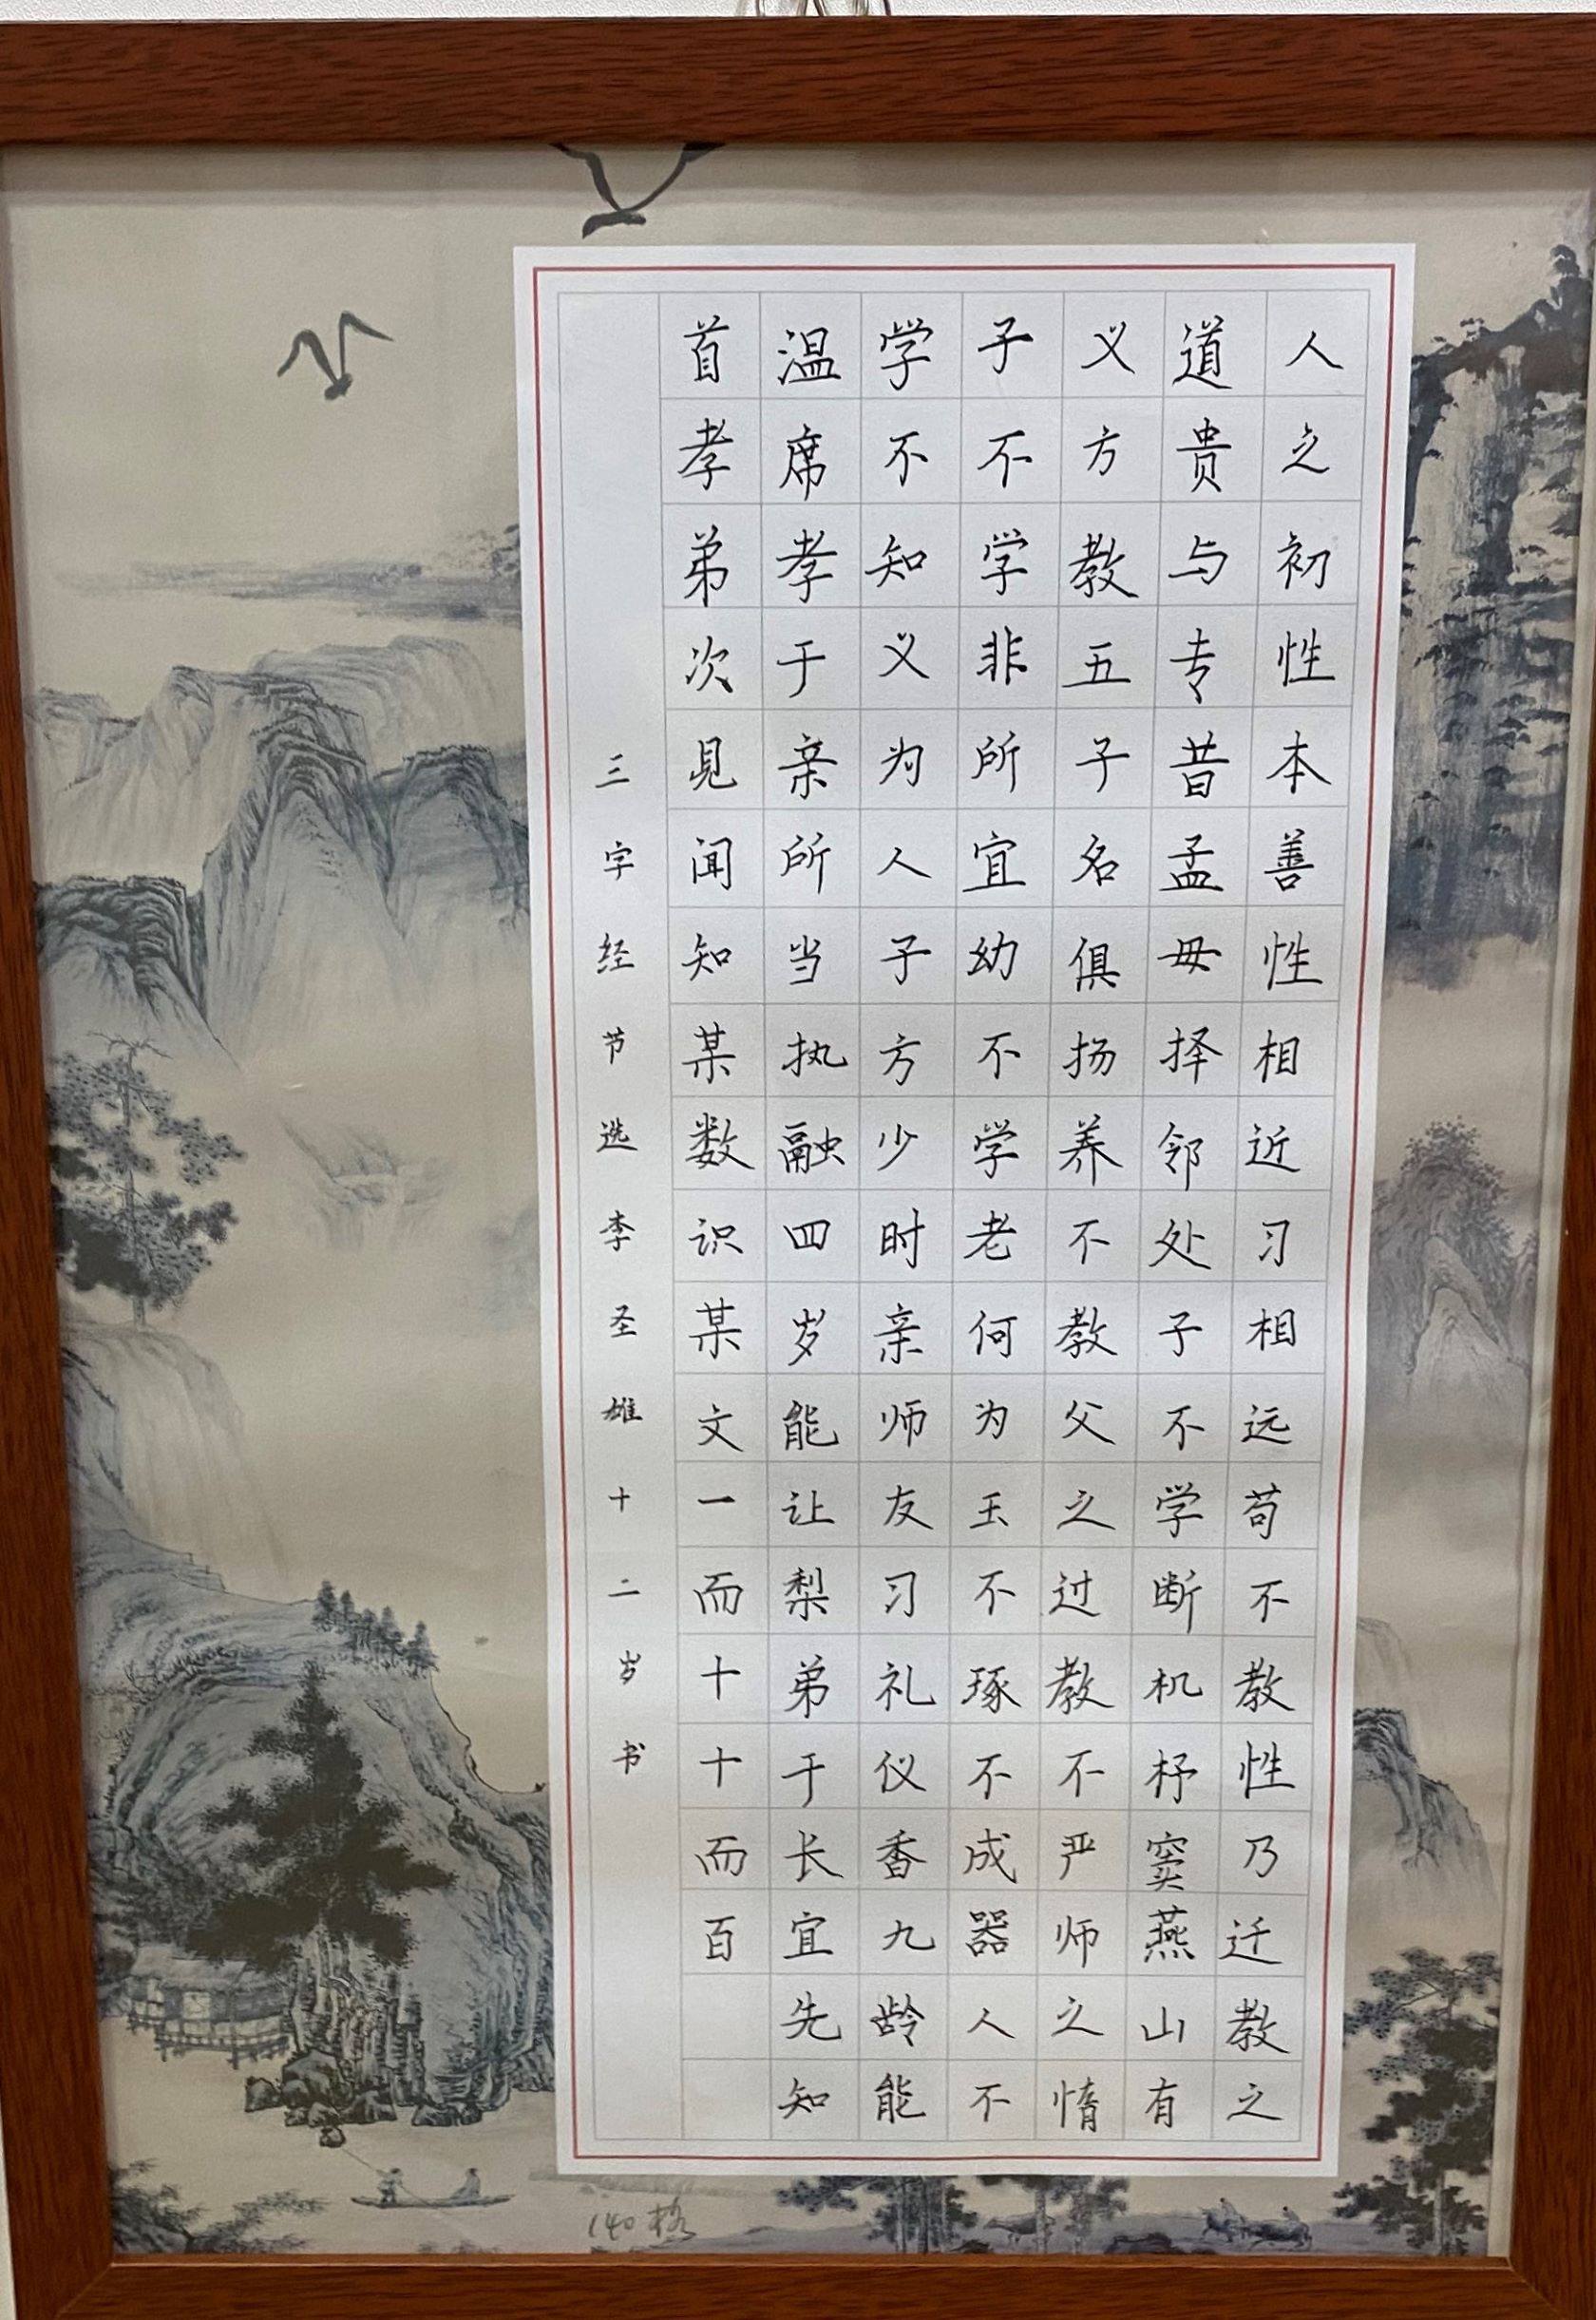 人之初性本善性相近习相远苟不教性乃迁教之
道贵与专昔孟母择邻处子不学断机杼窦燕山有
义方教五子名俱扬养不教父之过教不严师之惰
子不学非所宜幼不学老何为玉不琢不成器人不
学不知义为人子方少时亲师友习礼仪香九龄能
温席孝于亲所当执融四岁能让梨弟于长宜先知
首孝弟次见闻知某数识某文一而十十而百
三字经节选李圣雄十二岁书
140格